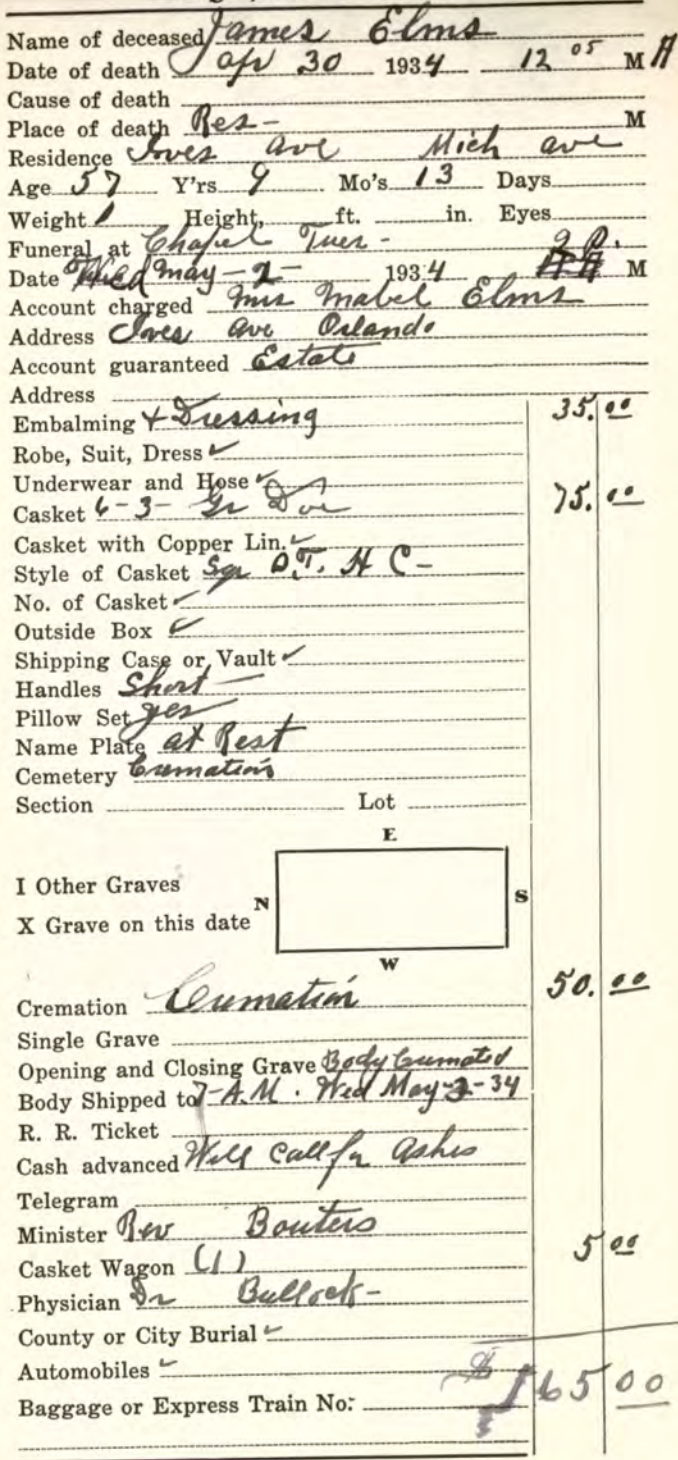 Name of deceased James Elms
Date of death Apr 30 1934 12 05 M A
Cause of death
Place of death Res- M
Residence Ives ave Mich ave
Age 57 Y'rs 9 Mo's 13 Days
Weight Height, ft. in. Eyes
Funeral at Chapel Tues -
Date Wed May-2- 1934 M
Account charged Mrs Mabel Elms
Address Ives Ave Orlando
Account guaranteed Estate
Address
Embalming + Dressing 35.00
Robe, Suit, Dress ✓
Underwear and Hose ✓
Casket 6-3- Gr Doe 75.00
Casket with Copper Lin. ✓
Style of Casket Sqr O.T. H C -
No. of Casket ✓
Outside Box ✓
Shipping Case or Vault ✓
Handles Short
Pillow Set yes
Name Plate at Rest
Cemetery Cremation
Section Lot
E
I Other Graves
N S
X Grave on this date
W
Cremation Cremation 50.00
Single Grave
Opening and Closing Grave Body Cremated
Body Shipped to 7-A.M. Wed May-2-34
R. R. Ticket
Cash advanced Will call for ashes
Telegram
Minister Rev Bouters
Casket Wagon (1) 5 00
Physician Dr Bullock-
County or City Burial ✓
Automobiles ✓
$165 00
Baggage or Express Train No.